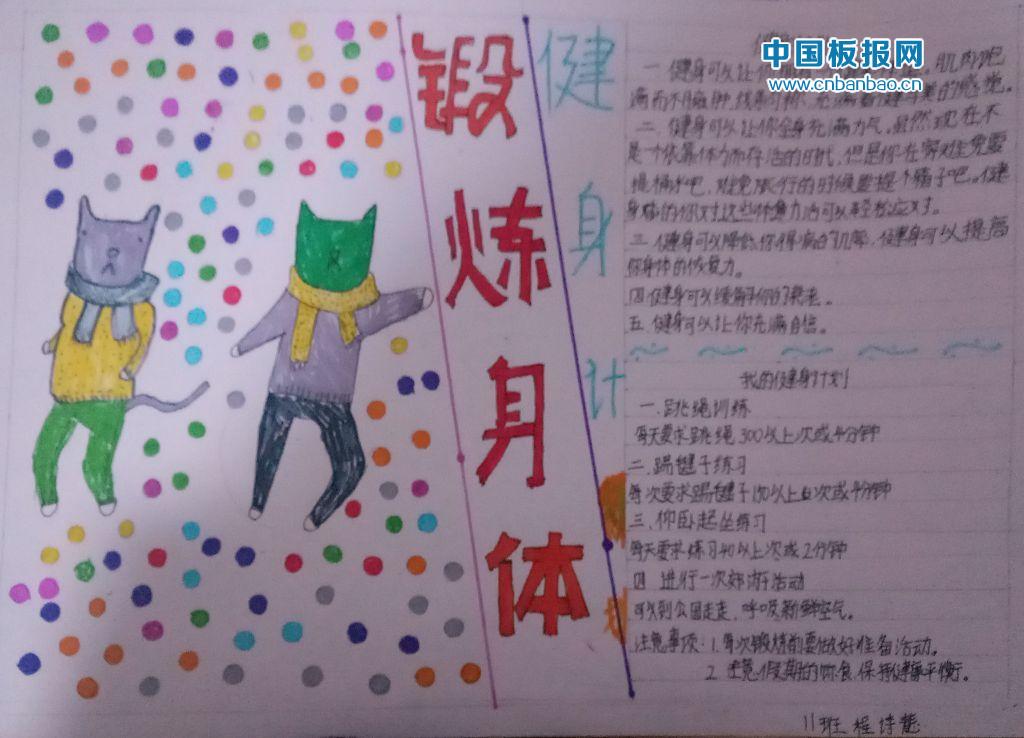 锻炼身体
健身计
中国板报网
www.cnbanbao.cn
一、健身可以让你
肌肉饱
满而不臃肿,
健与美的感觉。
二、健身可以让你全身充满力气。虽然现在不
是一个依靠体力而存活的时代,但是你在家
提桶水吧,
旅行的时候要提个箱子吧。健
身
的你对这些体力活可以轻松应对。
三、健身可以降低你得病的几率,健身可以提高
你身体的恢复力。
四、健身可以缓解你的衰老。
五、健身可以让你充满自信。
我的健身计划
一、跳绳训练
每天要求跳绳300以上次或4分钟
二、踢毽子练习
每次要求踢毽子
以上
次或
分钟
三、仰卧起坐练习
每天要求练习40以上次或2分钟
四 进行一次郊游活动
可以到公园走走,呼吸新鲜空气。
注意事项:1.每次锻炼前要做好准备活动。
2.注意假期的饮食,保持健康平衡。
11班 程诗慧